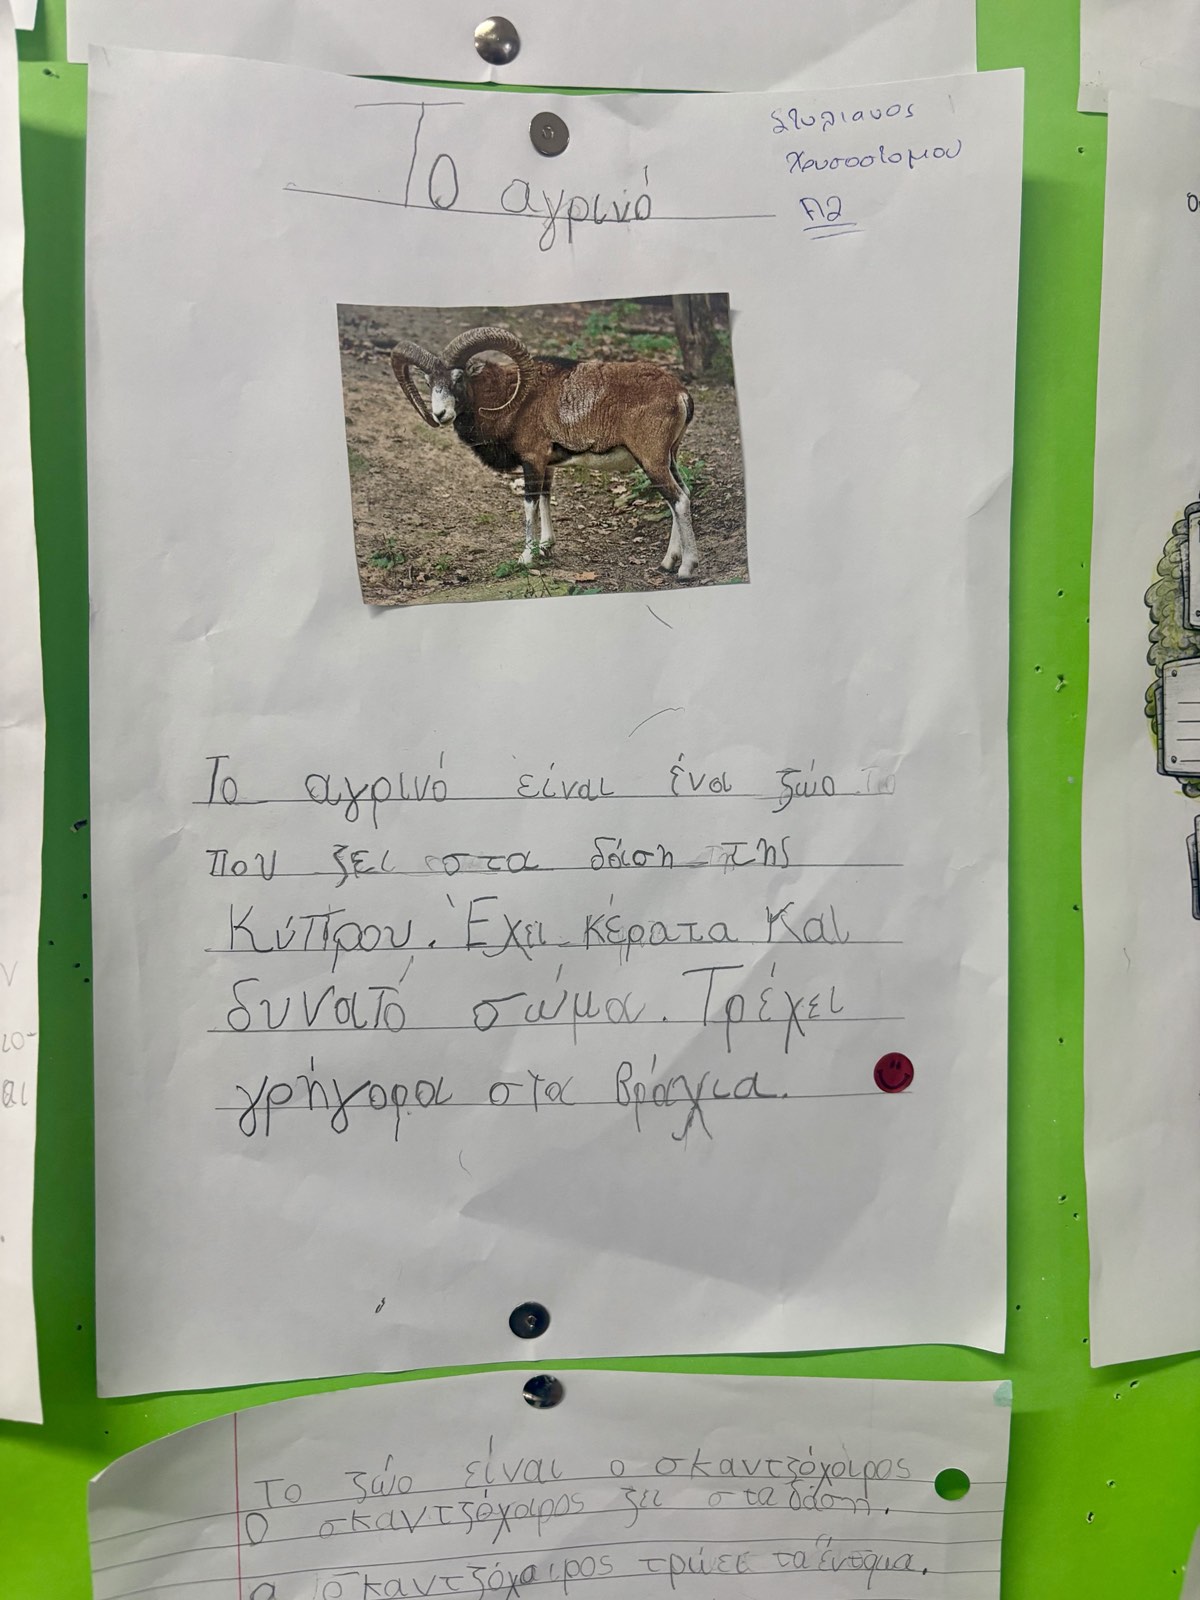 Το αγρινό
Στυλιανος
Χρυσοστομου
Α2
Το αγρινό είναι ένα ζώο
που ζει στα δάση της
Κύπρου. Έχει κέρατα και
δυνατό σώμα. Τρέχει
γρήγορα στα βράχια.
Το ζώο είναι ο σκαντζόχοιρος
Ο σκαντζόχοιρος ζει στα δάση.
ο σκαντζόχοιρος τρώει τα έντομα.